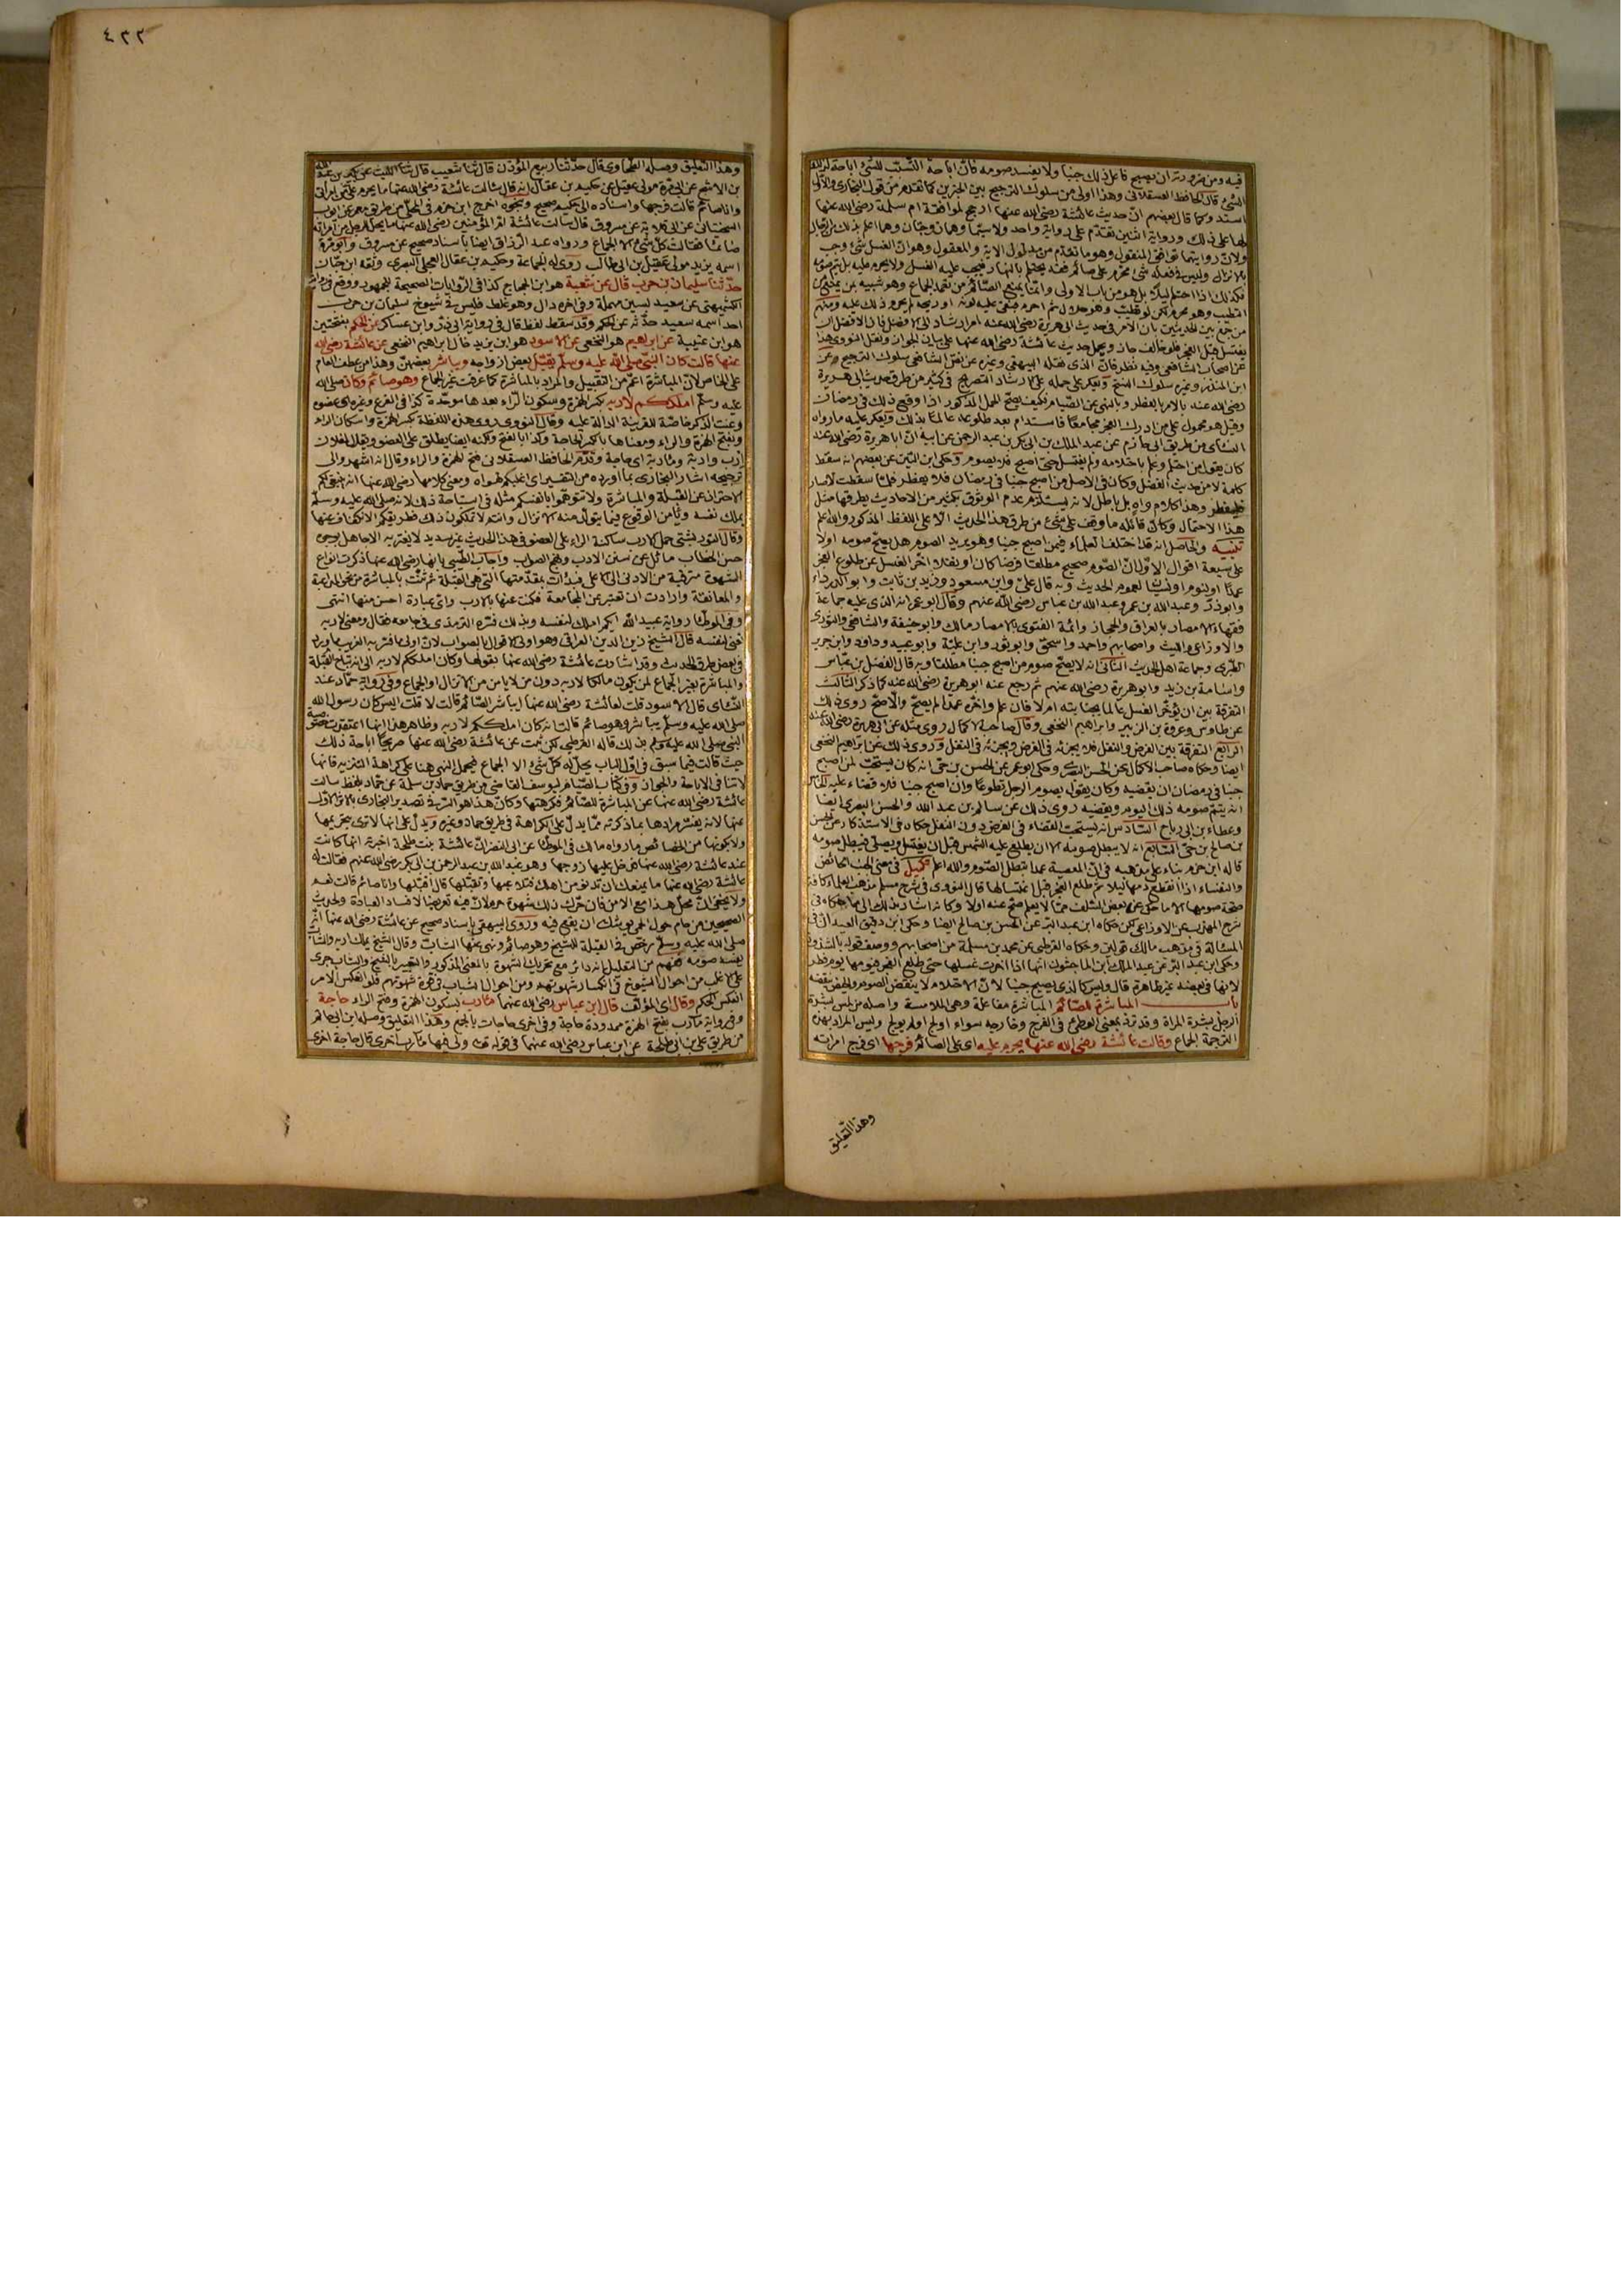 فيه ومن ضرورته ان يصبح فاعل ذلك جنبا ولا يفسد صومه فان اباحة التسبب للشئ اباحة لذلك
الشئ قال الحافظ العسقلاني وهذا اولى من سلوك الترجيح بين الخبرين كما تقدم من قول البخاري والاول
اسند وكما قال بعضهم ان حديث عائشة رضي الله عنها ارجح لموافقة ام سلمة رضي الله عنها
لها على ذلك ورواية اثنين تقدم على رواية واحد ولا سيما وهما زوجتان وهما اعلم بذلك من الرجال
ولان روايتهما توافق المنقول وهو ما تقدم من مدلول الاية والمعقول وهو ان الغسل شئ وجب
بالانزال وليس في فعله شئ محرم على صائم فقد يحتلم بالنهار فيجب عليه الغسل ولا يحرم عليه بل يتم صومه
فكذلك اذا احتلم ليلا بل هو من باب الاولى وانما يمنع الصائم من تعمد الجماع وهو شبيه بمن يمنع من
التطيب وهو محرم لكن لو تطيب وهو حلال ثم احرم فبقي عليه لونه او ريحه لم يحرم ذلك عليه ومنهم
من جمع بين الحديثين بان الامر في حديث ابي هريرة رضي الله عنه امر ارشاد الى الافضل فان الافضل ان
يغتسل قبل الفجر فلو خالف جاز ويحمل حديث عائشة رضي الله عنها على بيان الجواز ونقل النووي هذا
عن اصحاب الشافعي وفيه نظر فان الذي نقله البيهقي وغيره عن نص الشافعي سلوك الترجيح وعن
ابن المنذر وغيره سلوك النسخ ويعكر على حمله على الارشاد التصريح في كثير من طرق حديث ابي هريرة
رضي الله عنه بالامر بالفطر وبالنهي عن الصيام فكيف يصح الحمل المذكور اذا وقع ذلك في رمضان
وقيل هو محمول على من ادرك الفجر مجامعا فاستدام بعد طلوعه عالما بذلك ويعكر عليه ما رواه
النسائي من طريق ابي حازم عن عبد الملك بن ابي بكر بن عبد الرحمن عن ابيه ان ابا هريرة رضي الله عنه
كان يقول من احتلم وعلم باحتلامه ولم يغتسل حتى اصبح فلا يصوم وحكى ابن التين عن بعضهم انه سقط
كلمة لا من حديث الفضل وكان في الاصل من اصبح جنبا في رمضان فلا يفطر فلما سقطت لا صار
فليفطر وهذا كلام واه بل باطل لانه يستلزم عدم الوثوق بكثير من الاحاديث بطرقها مثل
هذا الاحتمال وكان قائله ما وقف على شئ من طرق هذا الحديث الا على اللفظ المذكور والله اعلم
تنبيه والحاصل انه قد اختلف العلماء فيمن اصبح جنبا وهو يريد الصوم هل يصح صومه اولا
على سبعة اقوال الاول ان الصوم صحيح مطلقا فرضا كان او نفلا اخر الغسل عن طلوع الفجر
عمدا او لنوم او نسيان لعموم الحديث وبه قال علي وابن مسعود وزيد بن ثابت وابو الدرداء
وابو ذر وعبد الله بن عمر وعبد الله بن عباس رضي الله عنهم وقال ابو عمر انه الذي عليه جماعة
فقهاء الامصار بالعراق والحجاز وائمة الفتوى بالامصار مالك وابو حنيفة والشافعي والثوري
والاوزاعي والليث واصحابهم واحمد واسحق وابو ثور وابن علية وابو عبيد وداود وابن جرير
الطبري وجماعة اهل الحديث الثاني انه لا يصح صوم من اصبح جنبا مطلقا وبه قال الفضل بن عباس
واسامة بن زيد وابو هريرة رضي الله عنهم ثم رجع عنه ابو هريرة رضي الله عنه كما ذكر الثالث
التفرقة بين ان يؤخر الغسل عالما بجنابته ام لا فان علم واخره عمدا لم يصح والا صح روي ذلك
عن طاوس وعروة بن الزبير وابراهيم النخعي وقال صاحب الاكمال روي مثله عن ابي هريرة رضي الله عنه
الرابع التفرقة بين الفرض والنفل فلا يجزئه في الفرض ويجزئه في النفل وروي ذلك عن ابراهيم النخعي
ايضا وحكاه صاحب الاكمال عن الحسن البصري وحكى ابو عمر عن الحسن بن حي انه كان يستحب لمن اصبح
جنبا في رمضان ان يقضيه وكان يقول يصوم الرجل تطوعا وان اصبح جنبا فلا قضاء عليه الخامس
انه يتم صومه ذلك اليوم ويقضيه روي ذلك عن سالم بن عبد الله والحسن البصري ايضا
وعطاء بن ابي رباح السادس انه يستحب القضاء في الفرض دون النفل حكاه في الاستذكار عن الحسن
بن صالح بن حي السابع انه لا يبطل صومه الا ان يطلع عليه الشمس قبل ان يغتسل ويصلي فيبطل صومه
قاله ابن حزم بناء على مذهبه في ان المعصية عمدا تبطل الصوم والله اعلم تكميل في معنى الجنب الحائض
والنفساء اذا انقطع دمها ليلا ثم طلع الفجر قبل اغتسالها قال النووي في شرح مسلم مذهب العلماء كافة
صحة صومها الا ما حكي عن بعض السلف مما لا يعلم صح عنه اولا وكانه اشار بذلك الى ما حكاه في
شرح المهذب عن الاوزاعي لكن حكاه ابن عبد البر عن الحسن بن صالح ايضا وحكى ابن دقيق العيد ان في
المسئلة في مذهب مالك قولين وحكاه القرطبي عن محمد بن مسلمة من اصحابهم ووصف قوله بالشذوذ
وحكى ابن عبد البر عن عبد الملك ابن الماجشون انها اذا اخرت غسلها حتى طلع الفجر فيومها يوم فطر
لانها في بعضه غير طاهرة قال وليس كالذي يصبح جنبا لان الاحتلام لا ينقض الصوم والحيض ينقضه
باب المباشرة للصائم المباشرة مفاعلة وهي الملامسة واصله من لمس بشرة
الرجل بشرة المراة وقد ترد بمعنى الوطئ في الفرج وخارجه سواء اولج او لم يولج وليس المراد بهذه
الترجمة الجماع وقالت عائشة رضي الله عنها يحرم عليه اي على الصائم فرجها اي فرج امراته
وهذا التعليق
٤٢٢
وهذا التعليق وصله الطحاوي قال حدثنا ربيع المؤذن قال ثنا شعيب قال ثنا الليث عن بكير بن عبد الله
بن الاشج عن ابي مرة مولى عقيل عن حكيم بن عقال انه قال سالت عائشة رضي الله عنها ما يحرم علي من امراتي
وانا صائم قالت فرجها واسناده الى حكيم صحيح وبنحوه اخرج ابن حزم في المحلى من طريق معمر عن ايوب
السختياني عن ابي قلابة عن مسروق قال سالت عائشة ام المؤمنين رضي الله عنها ما يحل للرجل من امراته
صائما فقالت كل شئ الا الجماع ورواه عبد الرزاق ايضا باسناد صحيح عن مسروق وابو مرة
اسمه يزيد مولى عقيل بن ابي طالب روى له الجماعة وحكيم بن عقال العجلي البصري وثقه ابن حبان
حدثنا سليمان بن حرب قال عن شعبة هو ابن الحجاج كذا في الروايات الصحيحة للجمهور ووقع في رواية
الكشميهني عن سعيد بسين مهملة وفي اخره دال وهو غلط فليس في شيوخ سليمان بن حرب
احد اسمه سعيد حدثه عن الحكم وقد سقط لفظ قال في رواية ابي ذر وابن عساكر عن الحكم بفتحتين
هو ابن عتيبة عن ابراهيم هو النخعي عن الاسود هو ابن يزيد خال ابراهيم النخعي عن عائشة رضي الله
عنها قالت كان النبي صلى الله عليه وسلم يقبل بعض ازواجه ويباشر بعضهن وهذا من عطف العام
على الخاص لان المباشرة اعم من التقبيل والمراد بالمباشرة كما عرفت غير الجماع وهو صائم وكان صلى الله
عليه وسلم املككم لاربه بكسر الهمزة وسكون الراء بعدها موحدة كذا في الفرع وغيره اي عضوه
وعنت الذكر خاصة للقرينة الدالة عليه وقال النووي روي هذه اللفظة بكسر الهمزة واسكان الراء
وبفتح الهمزة والراء ومعناها بالكسر الحاجة وكذا بالفتح ولكنه ايضا يطلق على العضو ويقال لفلان
ارب واربة وماربة اي حاجة وقدم الحافظ العسقلاني فتح الهمزة والراء وقال انه اشهر والى
ترجيحه اشار البخاري بما اورده من التفسير اي اغلبكم لهواه ومعنى كلامها رضي الله عنها انه ينبغي لكم
الاحتراز عن القبلة والمباشرة ولا تتوهموا بانفسكم مثله في استباحة ذلك لانه صلى الله عليه وسلم
يملك نفسه ويأمن الوقوع فيما يتولد منه الانزال وانتم لا تملكون ذلك فطريقكم الانكفاف عنها
وقال التوربشتي حمل الارب ساكنة الراء على العضو في هذا الحديث غير سديد لا يغتر به الا جاهل بوجوه
حسن الخطاب مائل عن سنن الادب ونهج الصواب واجاب الطيبي بانها رضي الله عنها ذكرت انواع
الشهوة مترقية من الادنى الى الاعلى فبدأت بمقدمتها التي هي القبلة ثم ثنت بالمباشرة من نحو المداعبة
والمعانقة وارادت ان تعبر عن المجامعة فكنت عنها بالارب واي عبارة احسن منها انتهى
وفي الموطأ رواية عبيد الله ايكم املك لنفسه وبذلك فسره الترمذي في جامعه فقال ومعنى لاربه
تعني لنفسه قال الشيخ زين الدين العراقي وهو اولى الاقوال بالصواب لان اولى ما فسر به الغريب ما ورد
في بعض طرق الحديث وقد اشارت عائشة رضي الله عنها بقولها وكان املككم لاربه الى انه تباح القبلة
والمباشرة بغير الجماع لمن يكون مالكا لاربه دون من لا يامن من الانزال او الجماع وفي رواية حماد عند
النسائي قال الاسود قلت لعائشة رضي الله عنها ايباشر الصائم قالت لا قلت اليس كان رسول الله
صلى الله عليه وسلم يباشر وهو صائم قالت انه كان املككم لاربه وظاهر هذا انها اعتقدت خصوصية
النبي صلى الله عليه وسلم بذلك قاله القرطبي لكن ثبت عن عائشة رضي الله عنها صريحا اباحة ذلك
حيث قالت فيما سبق في اول الباب يحل له كل شئ الا الجماع فيحمل النهي هنا على كراهة التنزيه فانها
لا تنافي الاباحة والجواز وفي كتاب الصيام ليوسف القاضي من طريق حماد بن سلمة عن حماد بلفظ سالت
عائشة رضي الله عنها عن المباشرة للصائم فكرهتها وكان هذا هو السر في تصدير البخاري بالاثر الاول
عنها لانه يفسر مرادها بما ذكرته مما يدل على الكراهة في طريق حماد وغيره ويدل على انها لا ترى بتحريمها
ولا بكونها من الخصائص ما رواه مالك في الموطأ عن ابي النضر ان عائشة بنت طلحة اخبرته انها كانت
عند عائشة رضي الله عنها فدخل عليها زوجها وهو عبد الله بن عبد الرحمن بن ابي بكر رضي الله عنهم فقالت له
عائشة رضي الله عنها ما يمنعك ان تدنو من اهلك فتلاعبها وتقبلها قال اقبلها وانا صائم قالت نعم
ولا يخفى ان محل هذا مع الامن فان حرك ذلك شهوة حرم لان فيه تعريضا لافساد العبادة ولحديث
الصحيحين من حام حول الحمى يوشك ان يقع فيه وروى البيهقي باسناد صحيح عن عائشة رضي الله عنها انه
صلى الله عليه وسلم رخص في القبلة للشيخ وهو صائم ونهى عنها الشاب وقال الشيخ يملك اربه والشاب
يفسد صومه ففهم من التعليل انه دائر مع تحريك الشهوة بالمعنى المذكور والتعبير بالشيخ والشاب جرى
على الاغلب من احوال الشيوخ في انكسار شهوتهم ومن احوال الشباب في قوة شهوتهم فلو انعكس الامر
انعكس الحكم وقال اي المؤلف قال ابن عباس رضي الله عنهما مأرب بسكون الهمزة وفتح الراء حاجة
وفي رواية مآرب بفتح الهمزة ممدودة حاجة وفي اخرى حاجات بالجمع وهذا التعليق وصله ابن ابي حاتم
من طريق علي بن ابي طلحة عن ابن عباس رضي الله عنهما في قوله تعالى ولي فيها مآرب اخرى قال حاجة اخرى